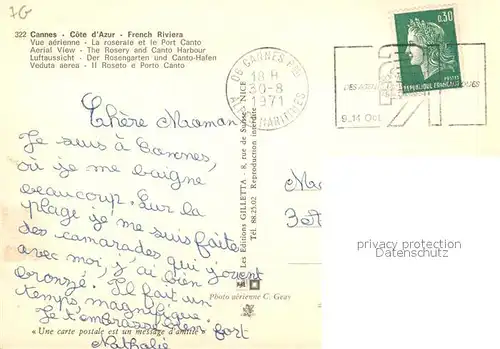 7G
322 Cannes - Côte d'Azur - French Riviera
Vue aérienne - La roseraie et le Port Canto
Aerial View - The Rosery and Canto Harbour
Luftaussicht - Der Rosengarten und Canto-Hafen
Veduta aerea - Il Roseto e Porto Canto
06 CANNES PPAL
18 H
30-8
1971
ALPES-MARITIMES
0,30
POSTES
REPUBLIQUE FRANCAISE
9_14 Oct.
Chère Maman
Je suis à Cannes,
où je me baigne
beaucoup. Sur la
plage je me suis faite
des camarades qui jouent
avec moi, j'ai bien
bronzé. Il fait un
temps magnifique.
Je t'embrasse bien fort
Nathalie
Les Editions GILLETTA - 8, rue de Suisse, NICE
Tél. 88.25.02 Reproduction interdite
Photo aérienne C. Gras
« Une carte postale est un message d'amitié »
privacy protection
Datenschutz